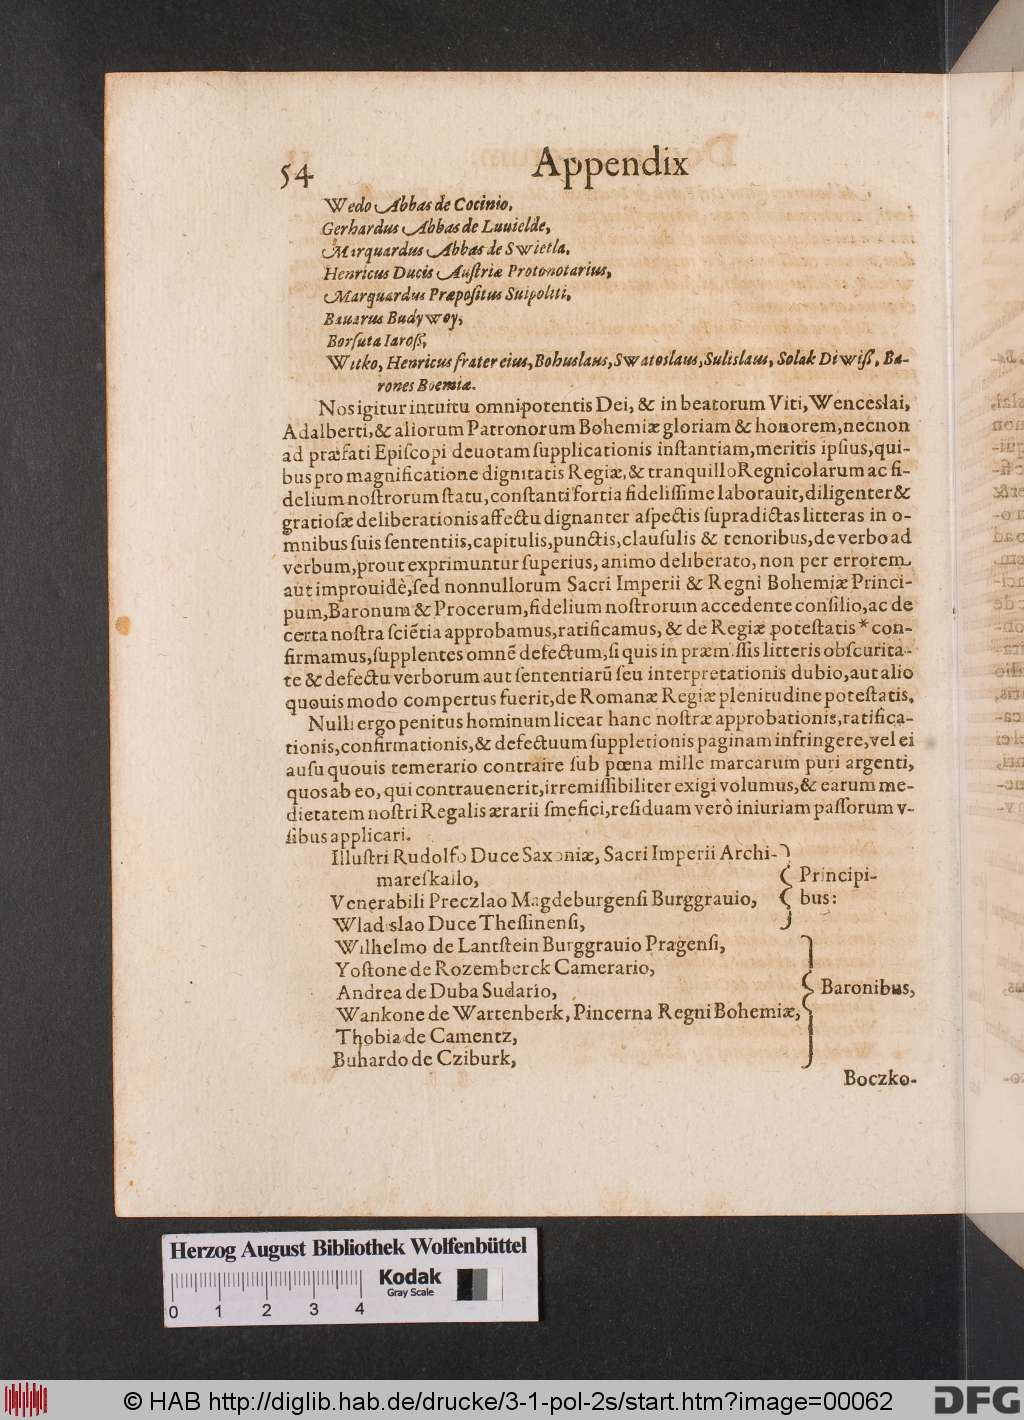 54 Appendix
Wedo Abbas de Cocinio,
Gerhardus Abbas de Luuielde,
Marquardus Abbas de Swietla,
Henricus Ducis Auſtriæ Protonotarius,
Marquardus Præpoſitus Suipoliti,
Bauarus Budywoy,
Borſuta Iaroß,
Witko, Henricus frater eius, Bohuslaus, Swatoslaus, Sulislaus, Solak Diwiſſ, Ba-
rones Boemiæ.
Nos igitur intuitu omnipotentis Dei, & in beatorum Viti, Wenceslai,
Adalberti, & aliorum Patronorum Bohemiæ gloriam & honorem, necnon
ad præfati Epiſcopi deuotam ſupplicationis inſtantiam, meritis ipſius, qui-
bus pro magnificatione dignitatis Regiæ, & tranquillo Regnicolarum ac fi-
delium noſtrorum ſtatu, conſtanti fortia fideliſſime laborauit, diligenter &
gratioſæ deliberationis affectu dignanter aſpectis ſupradictas litteras in o-
mnibus ſuis ſententiis, capitulis, punctis, clauſulis & tenoribus, de verbo ad
verbum, prout exprimuntur ſuperius, animo deliberato, non per errorem
aut improuidè, ſed nonnullorum Sacri Imperii & Regni Bohemiæ Princi-
pum, Baronum & Procerum, fidelium noſtrorum accedente conſilio, ac de
certa noſtra ſciẽtia approbamus, ratificamus, & de Regiæ poteſtatis * con-
firmamus, ſupplentes omnẽ defectum, ſi quis in præmiſſis litteris obſcurita-
te & defectu verborum aut ſententiarũ ſeu interpretationis dubio, aut alio
quouis modo compertus fuerit, de Romanæ Regiæ plenitudine poteſtatis.
Nulli ergo penitus hominum liceat hanc noſtræ approbationis, ratifica-
tionis, confirmationis, & defectuum ſuppletionis paginam infringere, vel ei
auſu quouis temerario contraire ſub pœna mille marcarum puri argenti,
quos ab eo, qui contrauenerit, irremiſſibiliter exigi volumus, & earum me-
dietatem noſtri Regalis ærarii ſmefici, reſiduam verò iniuriam paſſorum v-
ſibus applicari.
Illuſtri Rudolfo Duce Saxoniæ, Sacri Imperii Archi-
mareſkailo,
Venerabili Preczlao Magdeburgenſi Burggrauio,
Wladislao Duce Theſſinenſi,
Principi-
bus:
Wilhelmo de Lantſtein Burggrauio Pragenſi,
Yoſtone de Rozemberck Camerario,
Andrea de Duba Sudario,
Wankone de Wartenberk, Pincerna Regni Bohemiæ,
Thobia de Camentz,
Buhardo de Cziburk,
Baronibus,
Boczko-
Herzog August Bibliothek Wolfenbüttel
Kodak
Gray Scale
0 1 2 3 4
© HAB http://diglib.hab.de/drucke/3-1-pol-2s/start.htm?image=00062
DFG